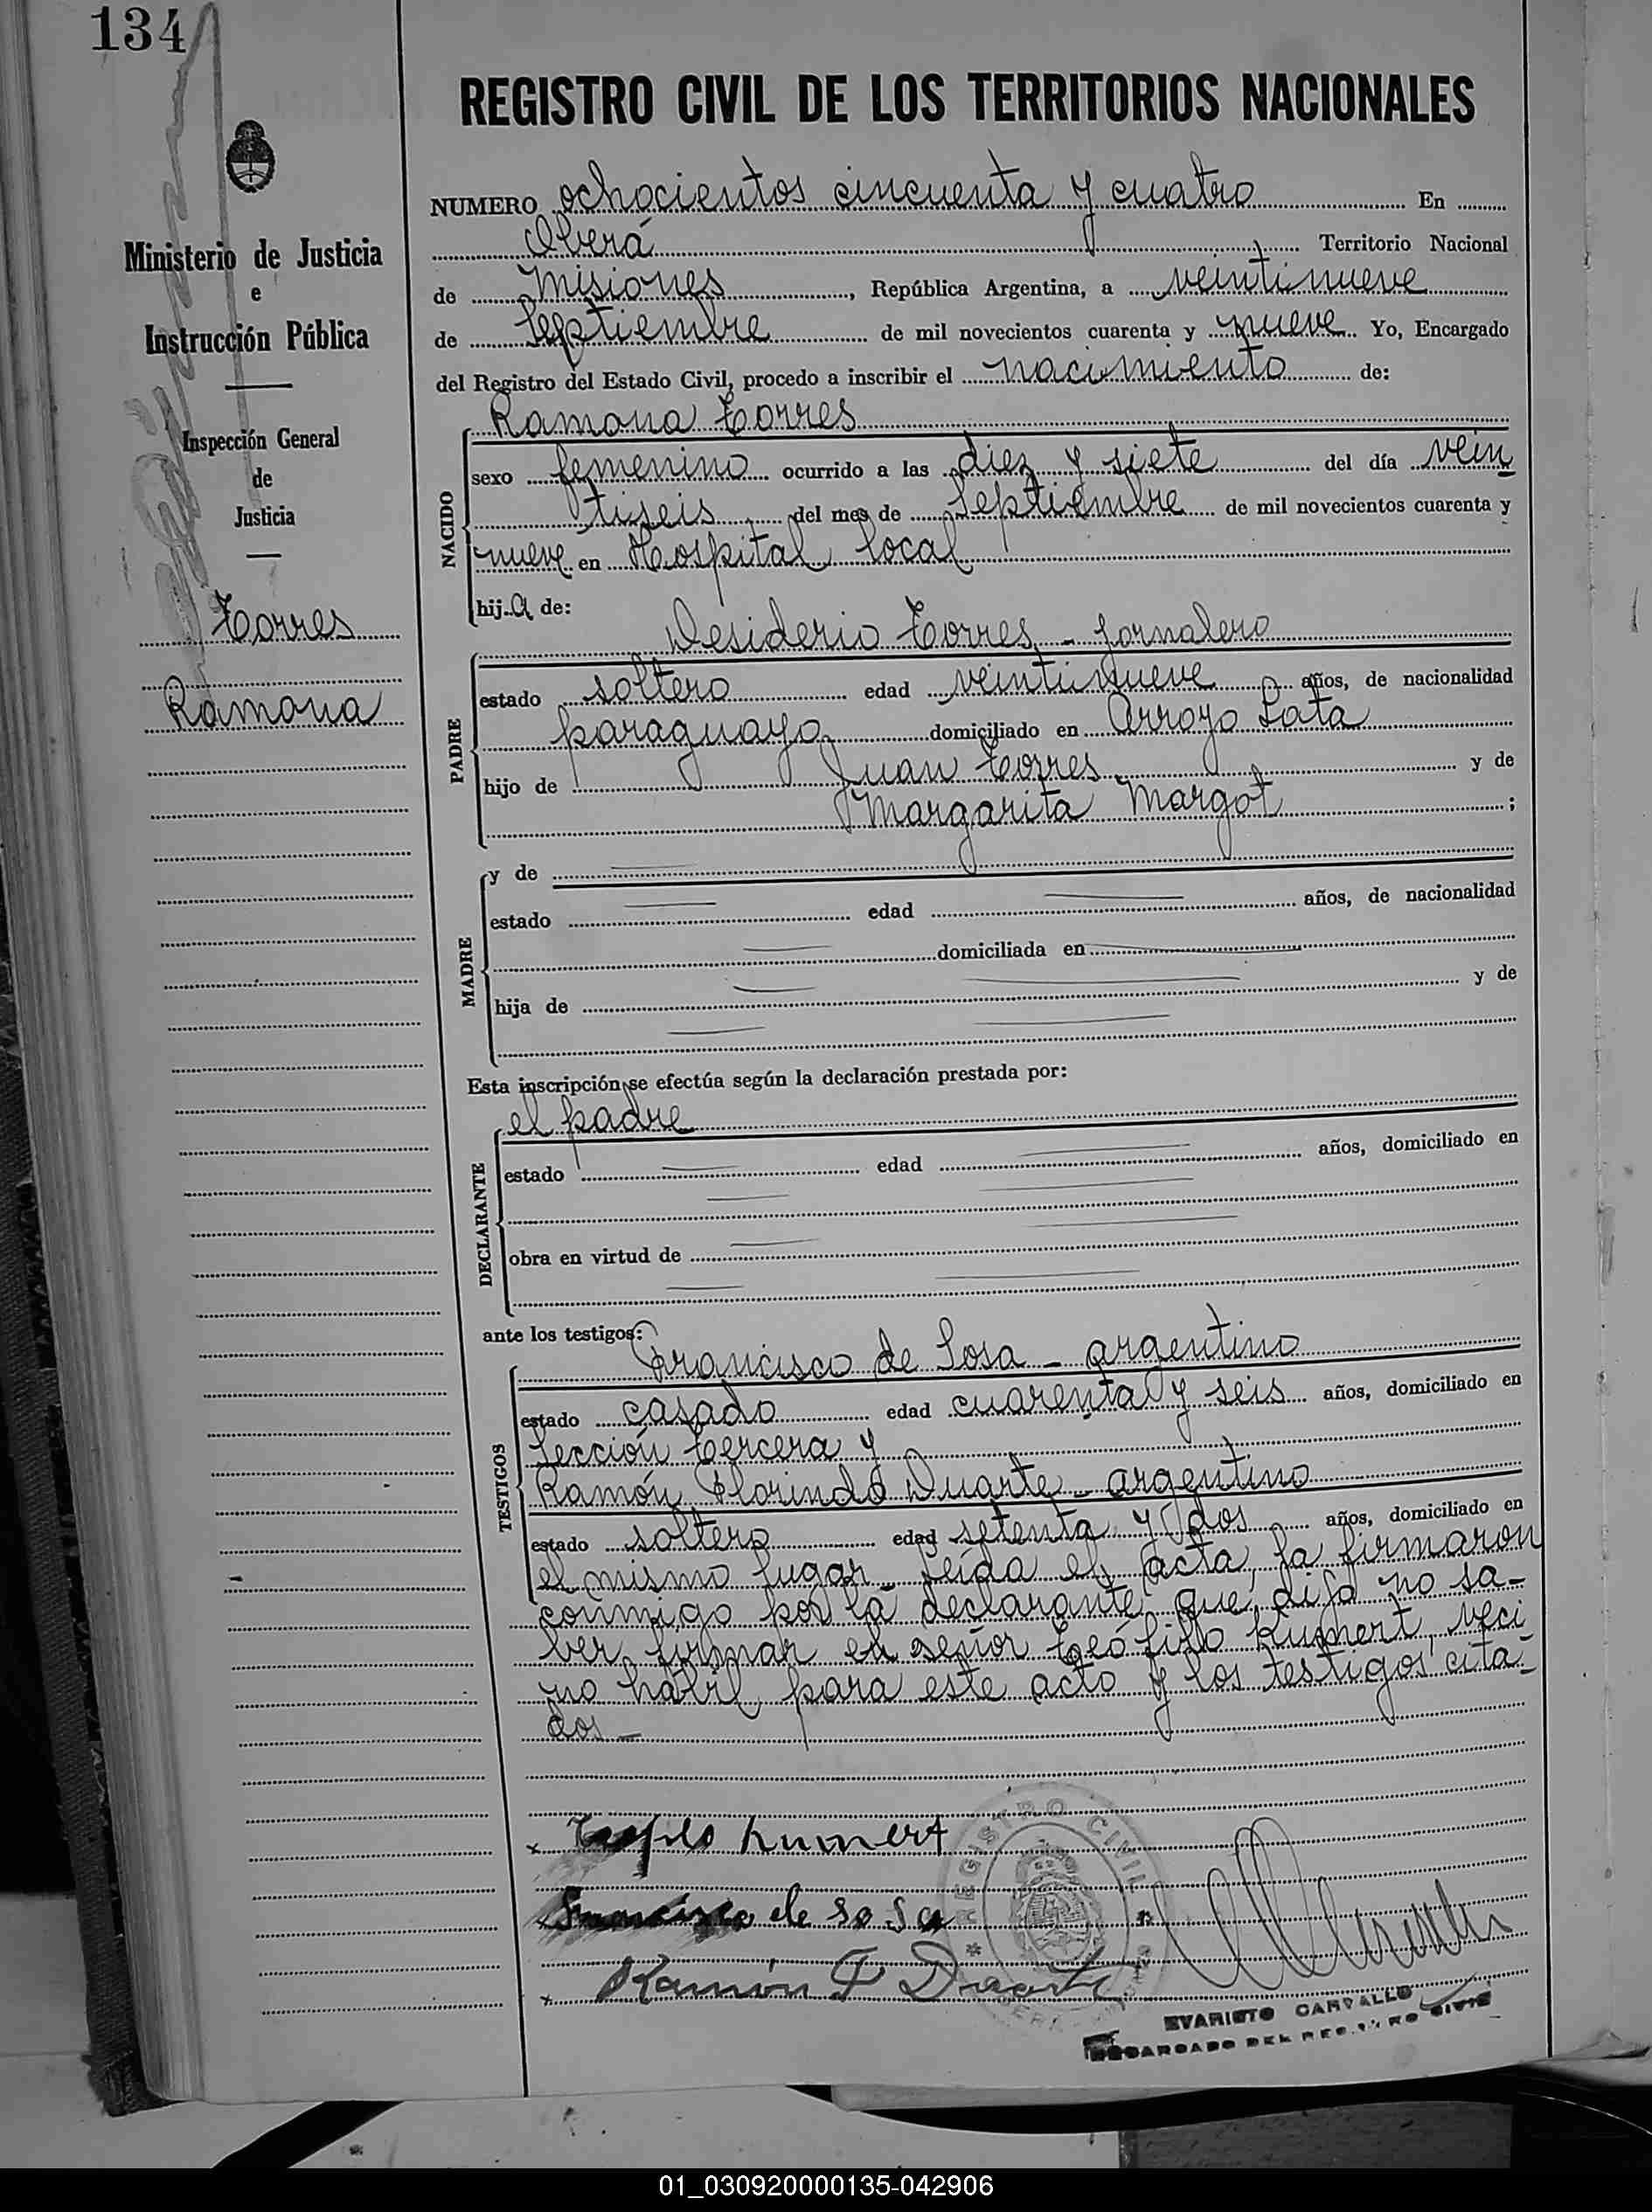 134
REGISTRO CIVIL DE LOS TERRITORIOS NACIONALES
Ministerio de Justicia
e
Instrucción Pública
Inspección General
de
Justicia
Torres
Ramona
NUMERO ochocientos cincuenta y cuatro En
Oberá Territorio Nacional
de Misiones, República Argentina, a veintinueve
de Septiembre de mil novecientos cuarenta y nueve Yo, Encargado
del Registro del Estado Civil, procedo a inscribir el nacimiento de:
Ramona Torres
NACIDO
sexo femenino ocurrido a las diez y siete del día vein
tiseis del mes de Septiembre de mil novecientos cuarenta y
nueve en Hospital local
hija de:
Desiderio Torres - jornalero
PADRE
estado soltero edad veintinueve años, de nacionalidad
paraguayo domiciliado en Arroyo Pata
hijo de Juan Torres y de
Margarita Margot ;
MADRE
y de
estado edad años, de nacionalidad
domiciliada en
hija de y de
Esta inscripción se efectúa según la declaración prestada por:
el padre
DECLARANTE
estado edad años, domiciliado en
obra en virtud de
ante los testigos:
Francisco de Sosa - argentino
TESTIGOS
estado casado edad cuarenta y seis años, domiciliado en
Sección tercera y
Ramón Florindo Duarte - argentino
estado soltero edad setenta y dos años, domiciliado en
el mismo lugar - leída el acta, la firmaron
conmigo por la declarante que dijo no sa-
ber firmar el señor Teófilo Kumert, veci
no hábil para este acto y los testigos cita-
dos -
x Teofilo Kumert
Francisco de Sosa
x Ramón F Duarte
REGISTRO CIVIL
EVARISTO CARVALLO
ENCARGADO DEL REGISTRO CIVIL
01_030920000135-042906